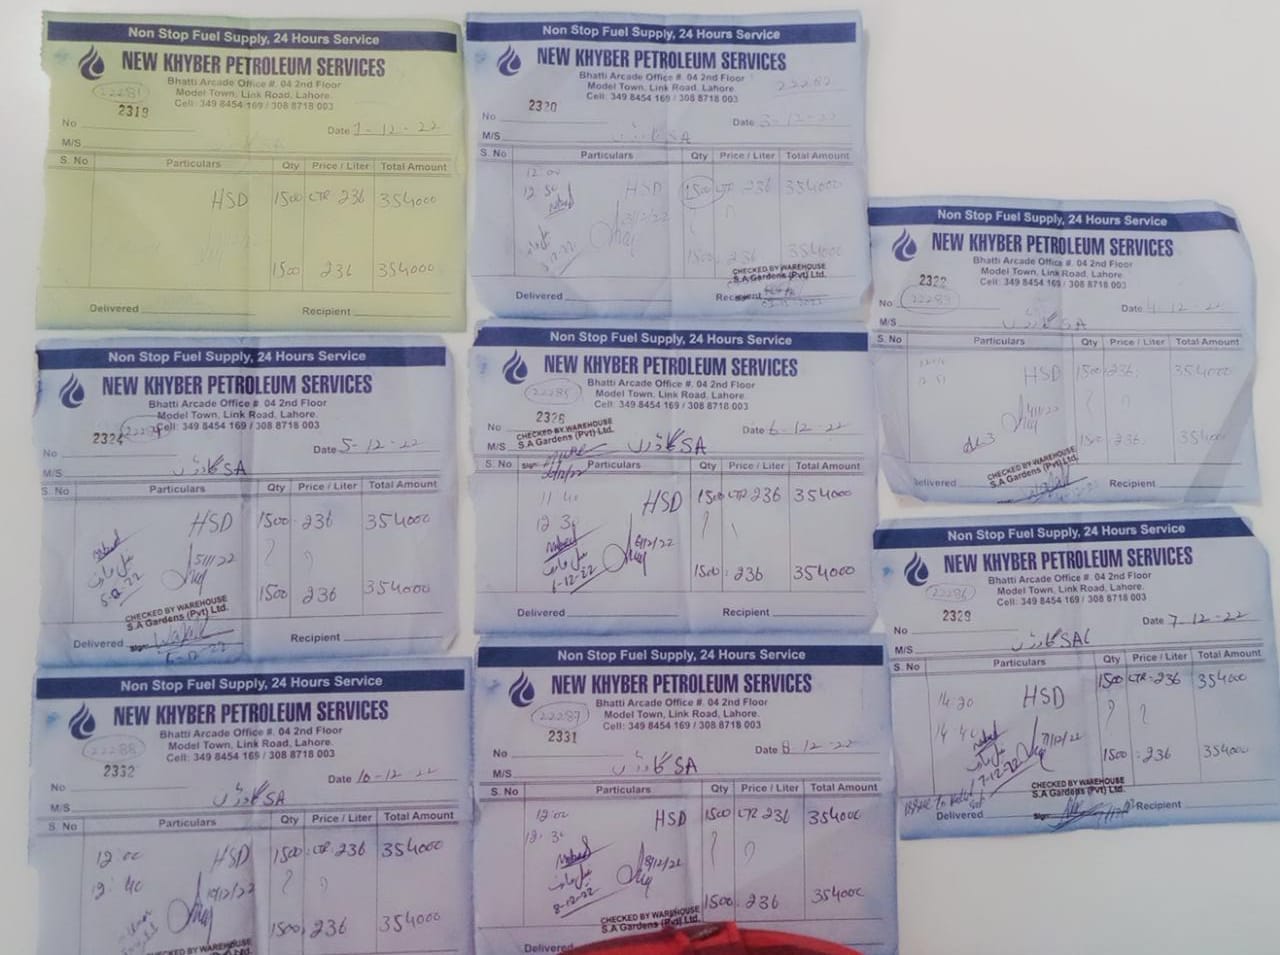 Non Stop Fuel Supply, 24 Hours Service
NEW KHYBER PETROLEUM SERVICES
Bhatti Arcade Office #. 04 2nd Floor
Model Town, Link Road, Lahore.
Cell: 349 8454 169 / 308 8718 003
22281
2319
No
Date 1-12-22
M/S
S. No Particulars Qty Price / Liter Total Amount
HSD 1500 LTR 236 354000
1500 236 354000
Delivered Recipient
Non Stop Fuel Supply, 24 Hours Service
NEW KHYBER PETROLEUM SERVICES
Bhatti Arcade Office #. 04 2nd Floor
Model Town, Link Road, Lahore.
Cell: 349 8454 169 / 308 8718 003
22282
2320
No
Date 3-12-22
M/S گارڈن SA
S. No Particulars Qty Price / Liter Total Amount
12:00
12 50 HSD 1500 LTR 236 354000
3/12/22
1500 236 354000
CHECKED BY WAREHOUSE
S.A Gardens (Pvt) Ltd.
Delivered Recipient
Non Stop Fuel Supply, 24 Hours Service
NEW KHYBER PETROLEUM SERVICES
Bhatti Arcade Office #. 04 2nd Floor
Model Town, Link Road, Lahore.
Cell: 349 8454 169 / 308 8718 003
2322
No 22283
Date 4-12-22
M/S گارڈن SA
S. No Particulars Qty Price / Liter Total Amount
HSD 1500 236 354000
1500 236 354000
CHECKED BY WAREHOUSE
S.A Gardens (Pvt) Ltd.
Delivered Recipient
Non Stop Fuel Supply, 24 Hours Service
NEW KHYBER PETROLEUM SERVICES
Bhatti Arcade Office #. 04 2nd Floor
Model Town, Link Road, Lahore.
Cell: 349 8454 169 / 308 8718 003
2324
No
Date 5-12-22
M/S گارڈن SA
S. No Particulars Qty Price / Liter Total Amount
HSD 1500 236 354000
1500 236 354000
CHECKED BY WAREHOUSE
S.A Gardens (Pvt) Ltd.
Delivered Sign: Recipient
Non Stop Fuel Supply, 24 Hours Service
NEW KHYBER PETROLEUM SERVICES
Bhatti Arcade Office #. 04 2nd Floor
Model Town, Link Road, Lahore.
Cell: 349 8454 169 / 308 8718 003
22285
2326
No
CHECKED BY WAREHOUSE
S.A Gardens (Pvt) Ltd.
Date 6-12-22
M/S گارڈن SA
S. No Sign: Particulars Qty Price / Liter Total Amount
11 40 HSD 1500 LTR 236 354000
12 30
6/12/22
6-12-22
1500 236 354000
Delivered Recipient
Non Stop Fuel Supply, 24 Hours Service
NEW KHYBER PETROLEUM SERVICES
Bhatti Arcade Office #. 04 2nd Floor
Model Town, Link Road, Lahore.
Cell: 349 8454 169 / 308 8718 003
22286
2329
No
Date 7-12-22
M/S گارڈن SA
S. No Particulars Qty Price / Liter Total Amount
14:20 HSD 1500 LTR 236 354000
7/12/22
7-12-22
1500 236 354000
CHECKED BY WAREHOUSE
S.A Gardens (Pvt) Ltd.
Delivered Sign: Recipient
Non Stop Fuel Supply, 24 Hours Service
NEW KHYBER PETROLEUM SERVICES
Bhatti Arcade Office #. 04 2nd Floor
Model Town, Link Road, Lahore.
Cell: 349 8454 169 / 308 8718 003
22288
2332
No
Date 10-12-22
M/S گارڈن SA
S. No Particulars Qty Price / Liter Total Amount
12:00 HSD 1500 LTR 236 354000
12:40
10/12/22
1500 236 354000
CHECKED BY WAREHOUSE
Non Stop Fuel Supply, 24 Hours Service
NEW KHYBER PETROLEUM SERVICES
Bhatti Arcade Office #. 04 2nd Floor
Model Town, Link Road, Lahore.
Cell: 349 8454 169 / 308 8718 003
22287
2331
No
Date 8-12-22
M/S گارڈن SA
S. No Particulars Qty Price / Liter Total Amount
12:00 HSD 1500 LTR 236 354000
12:30
8/12/22
8-12-22
1500 236 354000
CHECKED BY WAREHOUSE
S.A Gardens (Pvt) Ltd.
Delivered